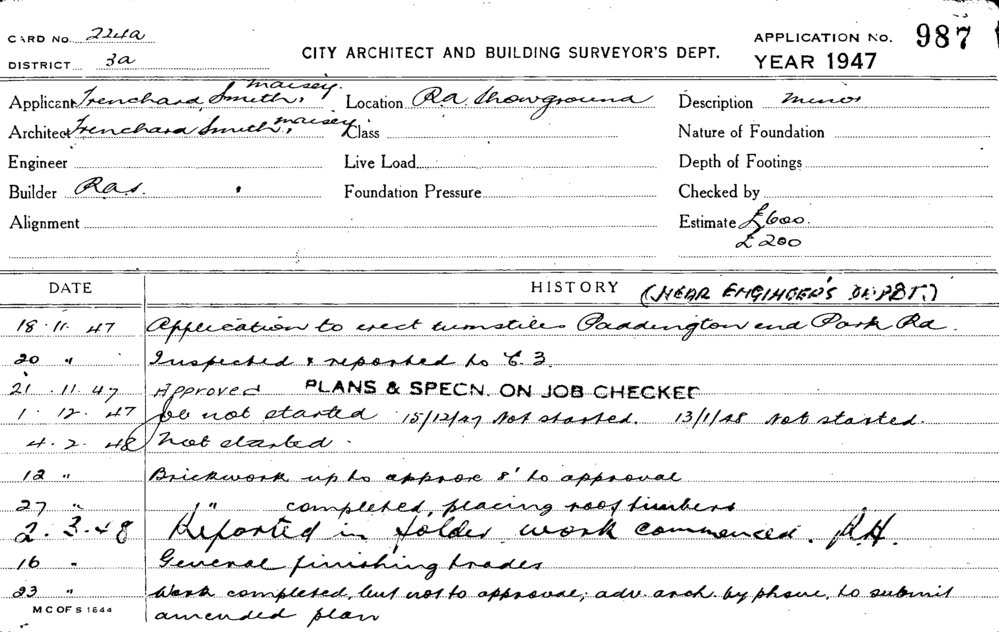 CARD No. 224a
DISTRICT 3a
CITY ARCHITECT AND BUILDING SURVEYOR'S DEPT.
APPLICATION No. 987
YEAR 1947
Applicant Trenchard, Smith, Maisey. Location R.a. Showground Description minor
Architect Trenchard Smith, Maisey Class Nature of Foundation
Engineer Live Load Depth of Footings
Builder Ras. Foundation Pressure Checked by
Alignment Estimate £600.
£200
DATE HISTORY (NEAR ENGINEER'S DEPBT.)
18.11.47 Application to erect turnstiles Paddington end Park Rd.
20 " Inspected & reported to C.3.
21.11.47 Approved PLANS & SPECN. ON JOB CHECKED
1.12.47 Job not started 15/12/47 Not started. 13/1/48 Not started.
4.2.48 Not started.
12 " Brickwork up to approx 8' to approval
27 " " completed, placing roof timbers
2.3.48 Reported in folder work commenced. R.H.
16 " General finishing trades
23 " Work completed, but not to approval; adv. arch. by phone, to submit
amended plan
M C OF S 1844